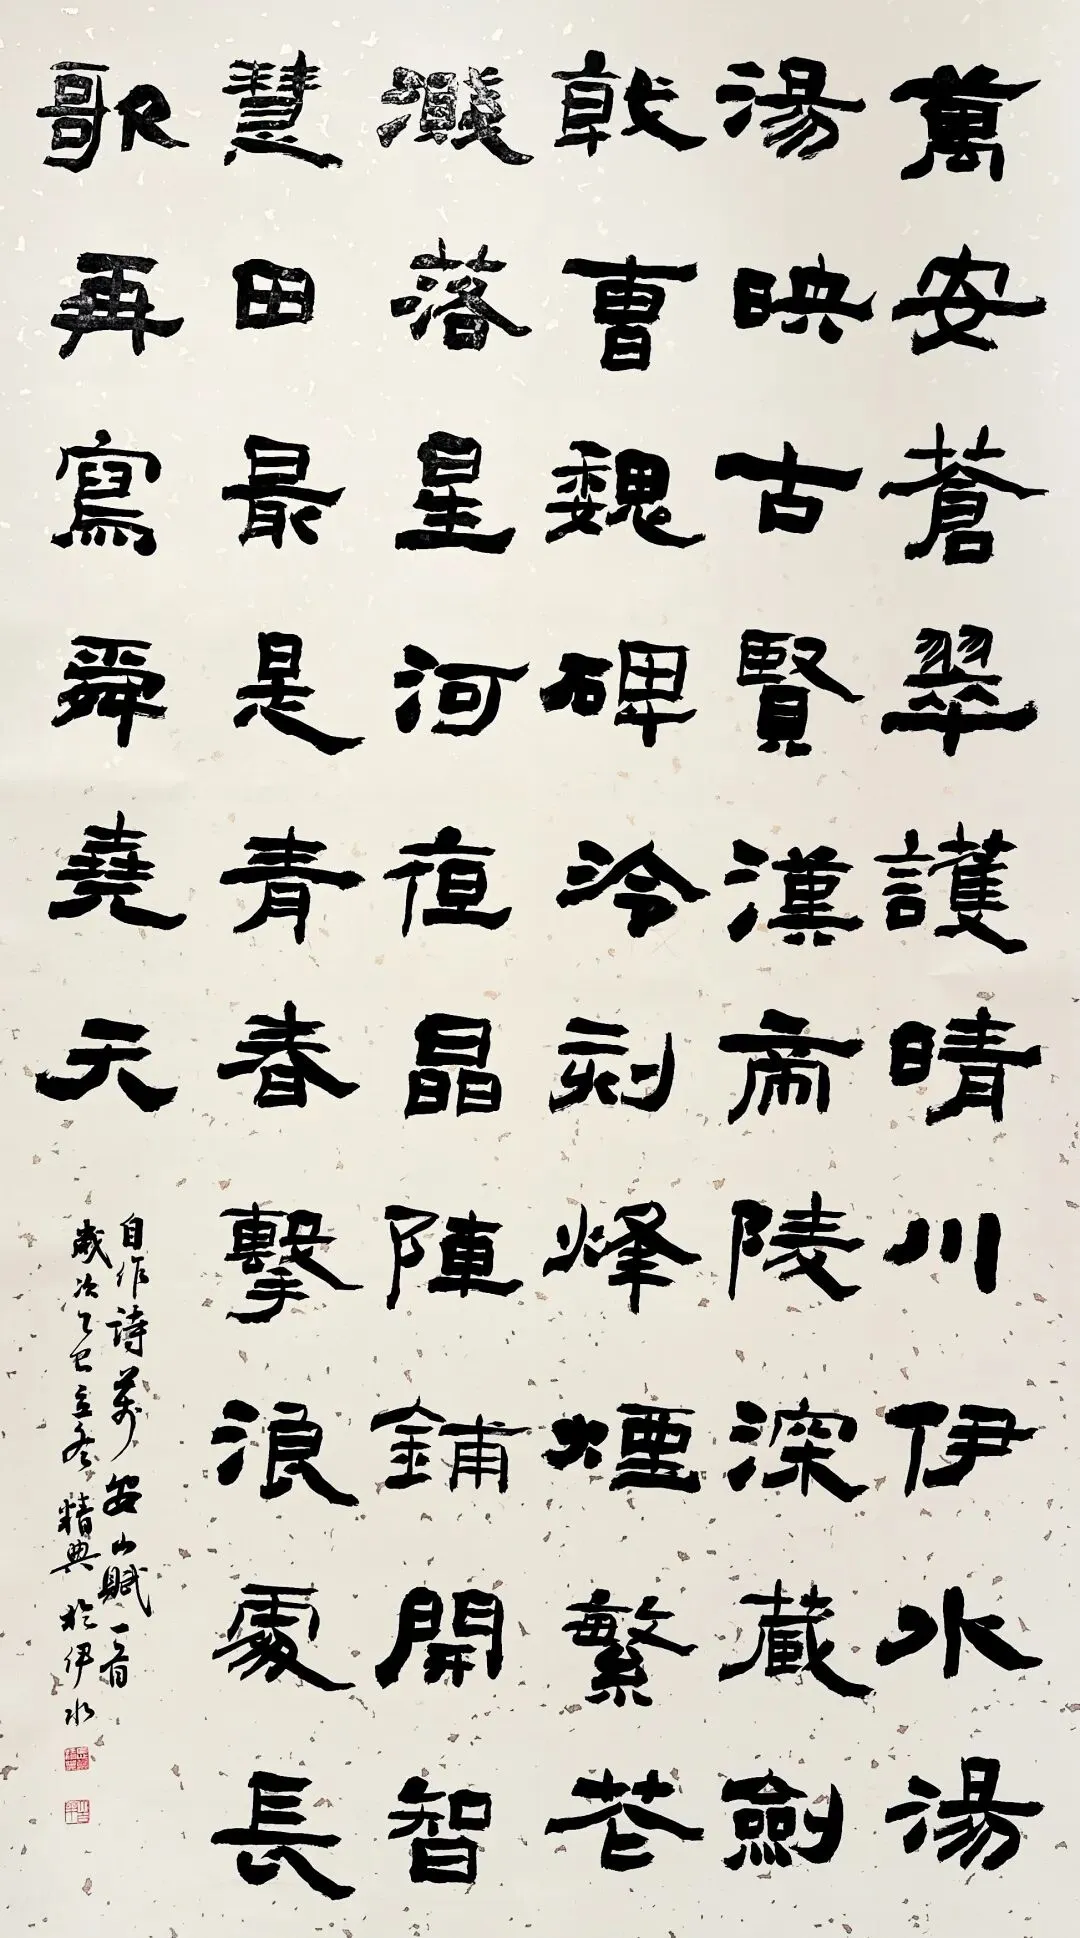 萬安蒼翠護晴川伊水湯
湯映古賢漢帝陵深藏劍
戟曹魏碑泠刻烽煙繁花
濺落星河恒晶陣鋪開智
慧田最是青春擊浪處長
歌再寫舜堯天
自作詩萬安山賦一首
歲次乙巳立冬精典於伊水